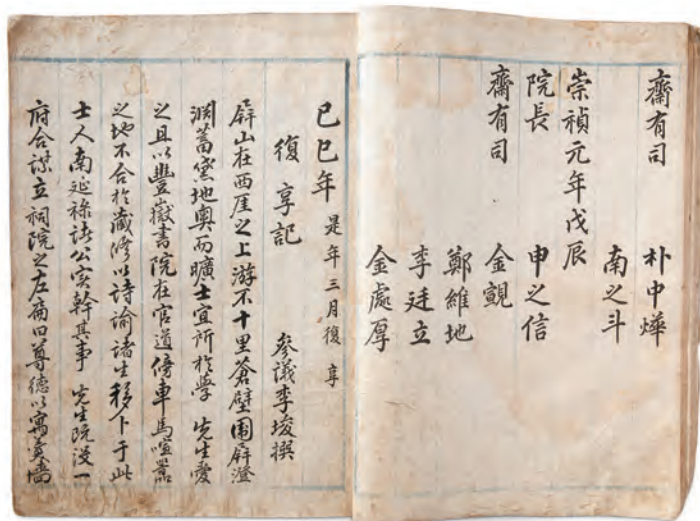 齋有司 朴中燁
南之斗
崇禎元年戊辰
院長 申之信
齋有司 金覿
鄭維地
李廷立
金處厚
己巳年 是年三月復享
復享記 參議李埈撰
屛山在西厓之上游不十里蒼壁圍屛澄
渊蓄黛地奧而曠士宜所於學 先生愛
之且以豐嶽書院在官道傍車馬喧嚣
之地不合於藏修以詩諭諸生移卜于此
士人南延祿諸公实幹其事 先生既沒一
府合謀立祠院之左扁曰尊德以寓羹墻